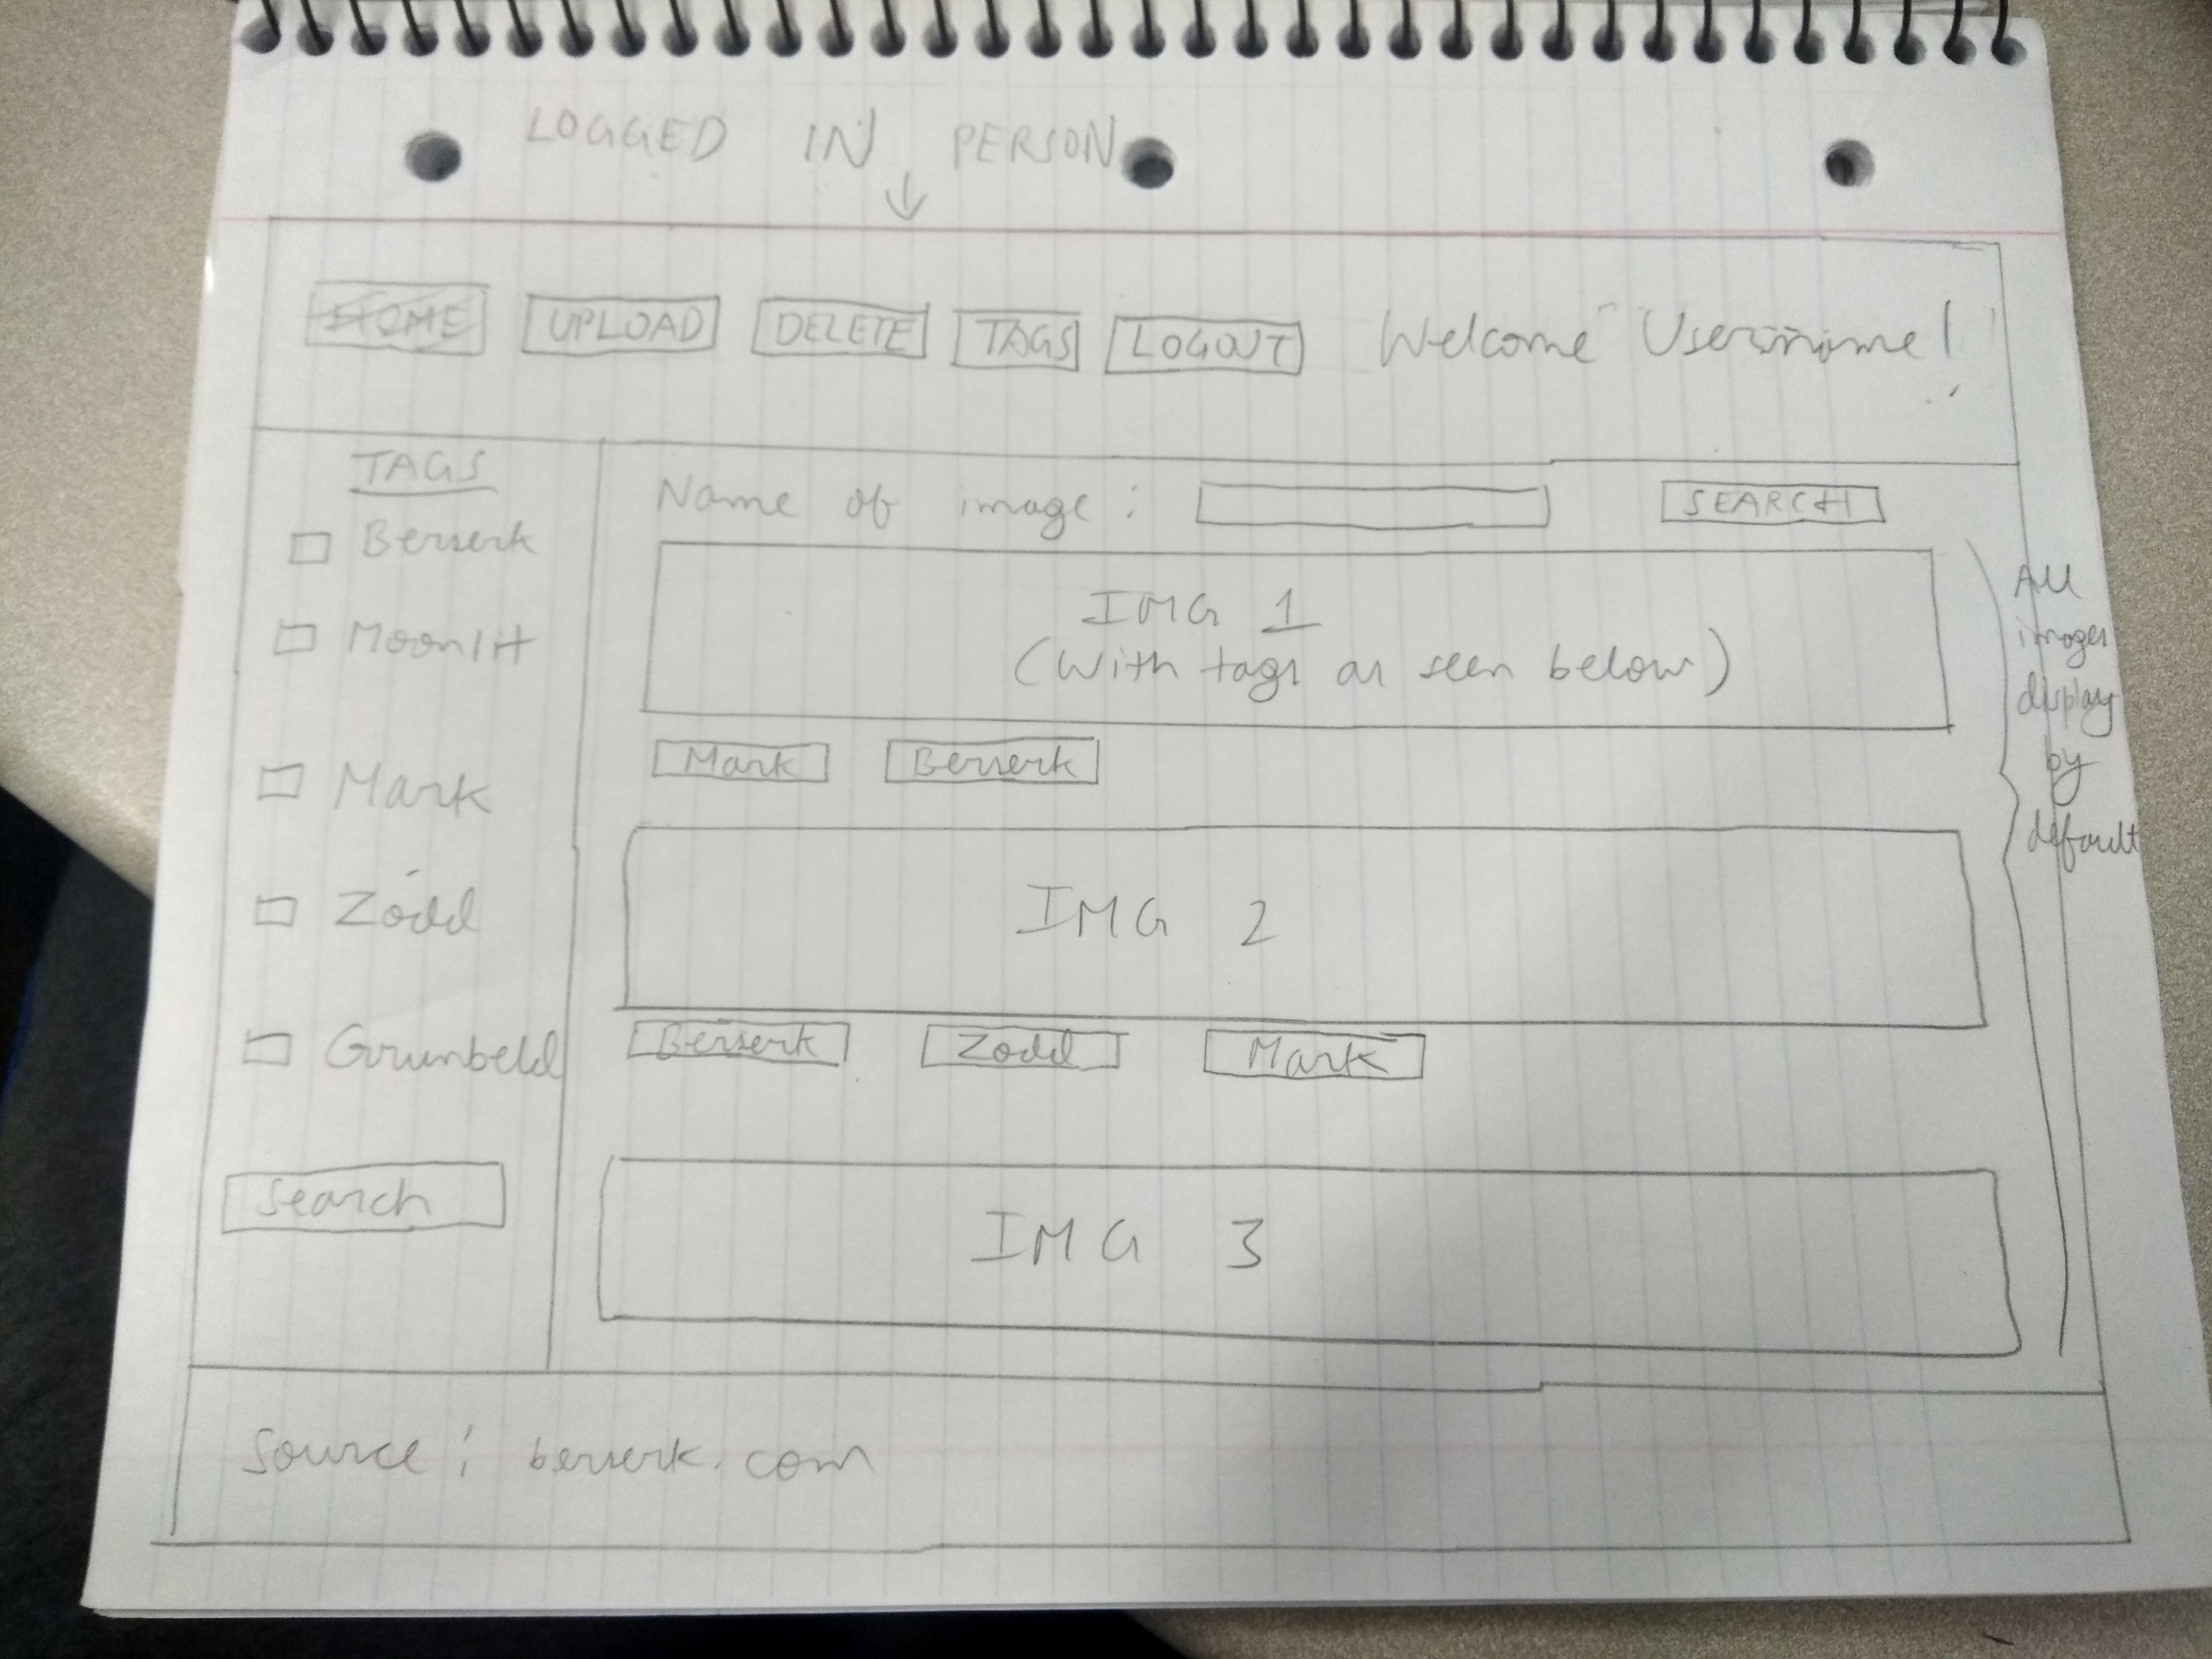 LOGGED IN PERSON
HOME UPLOAD DELETE TAGS LOGOUT Welcome Username!
TAGS
Berserk
Moonlit
Mark
Zodd
Grunbeld
Search
Name of image : SEARCH
IMG 1
(With tags as seen below)
Mark Berserk
IMG 2
Berserk Zodd Mark
IMG 3
All
images
display
by
default
Source : berserk.com